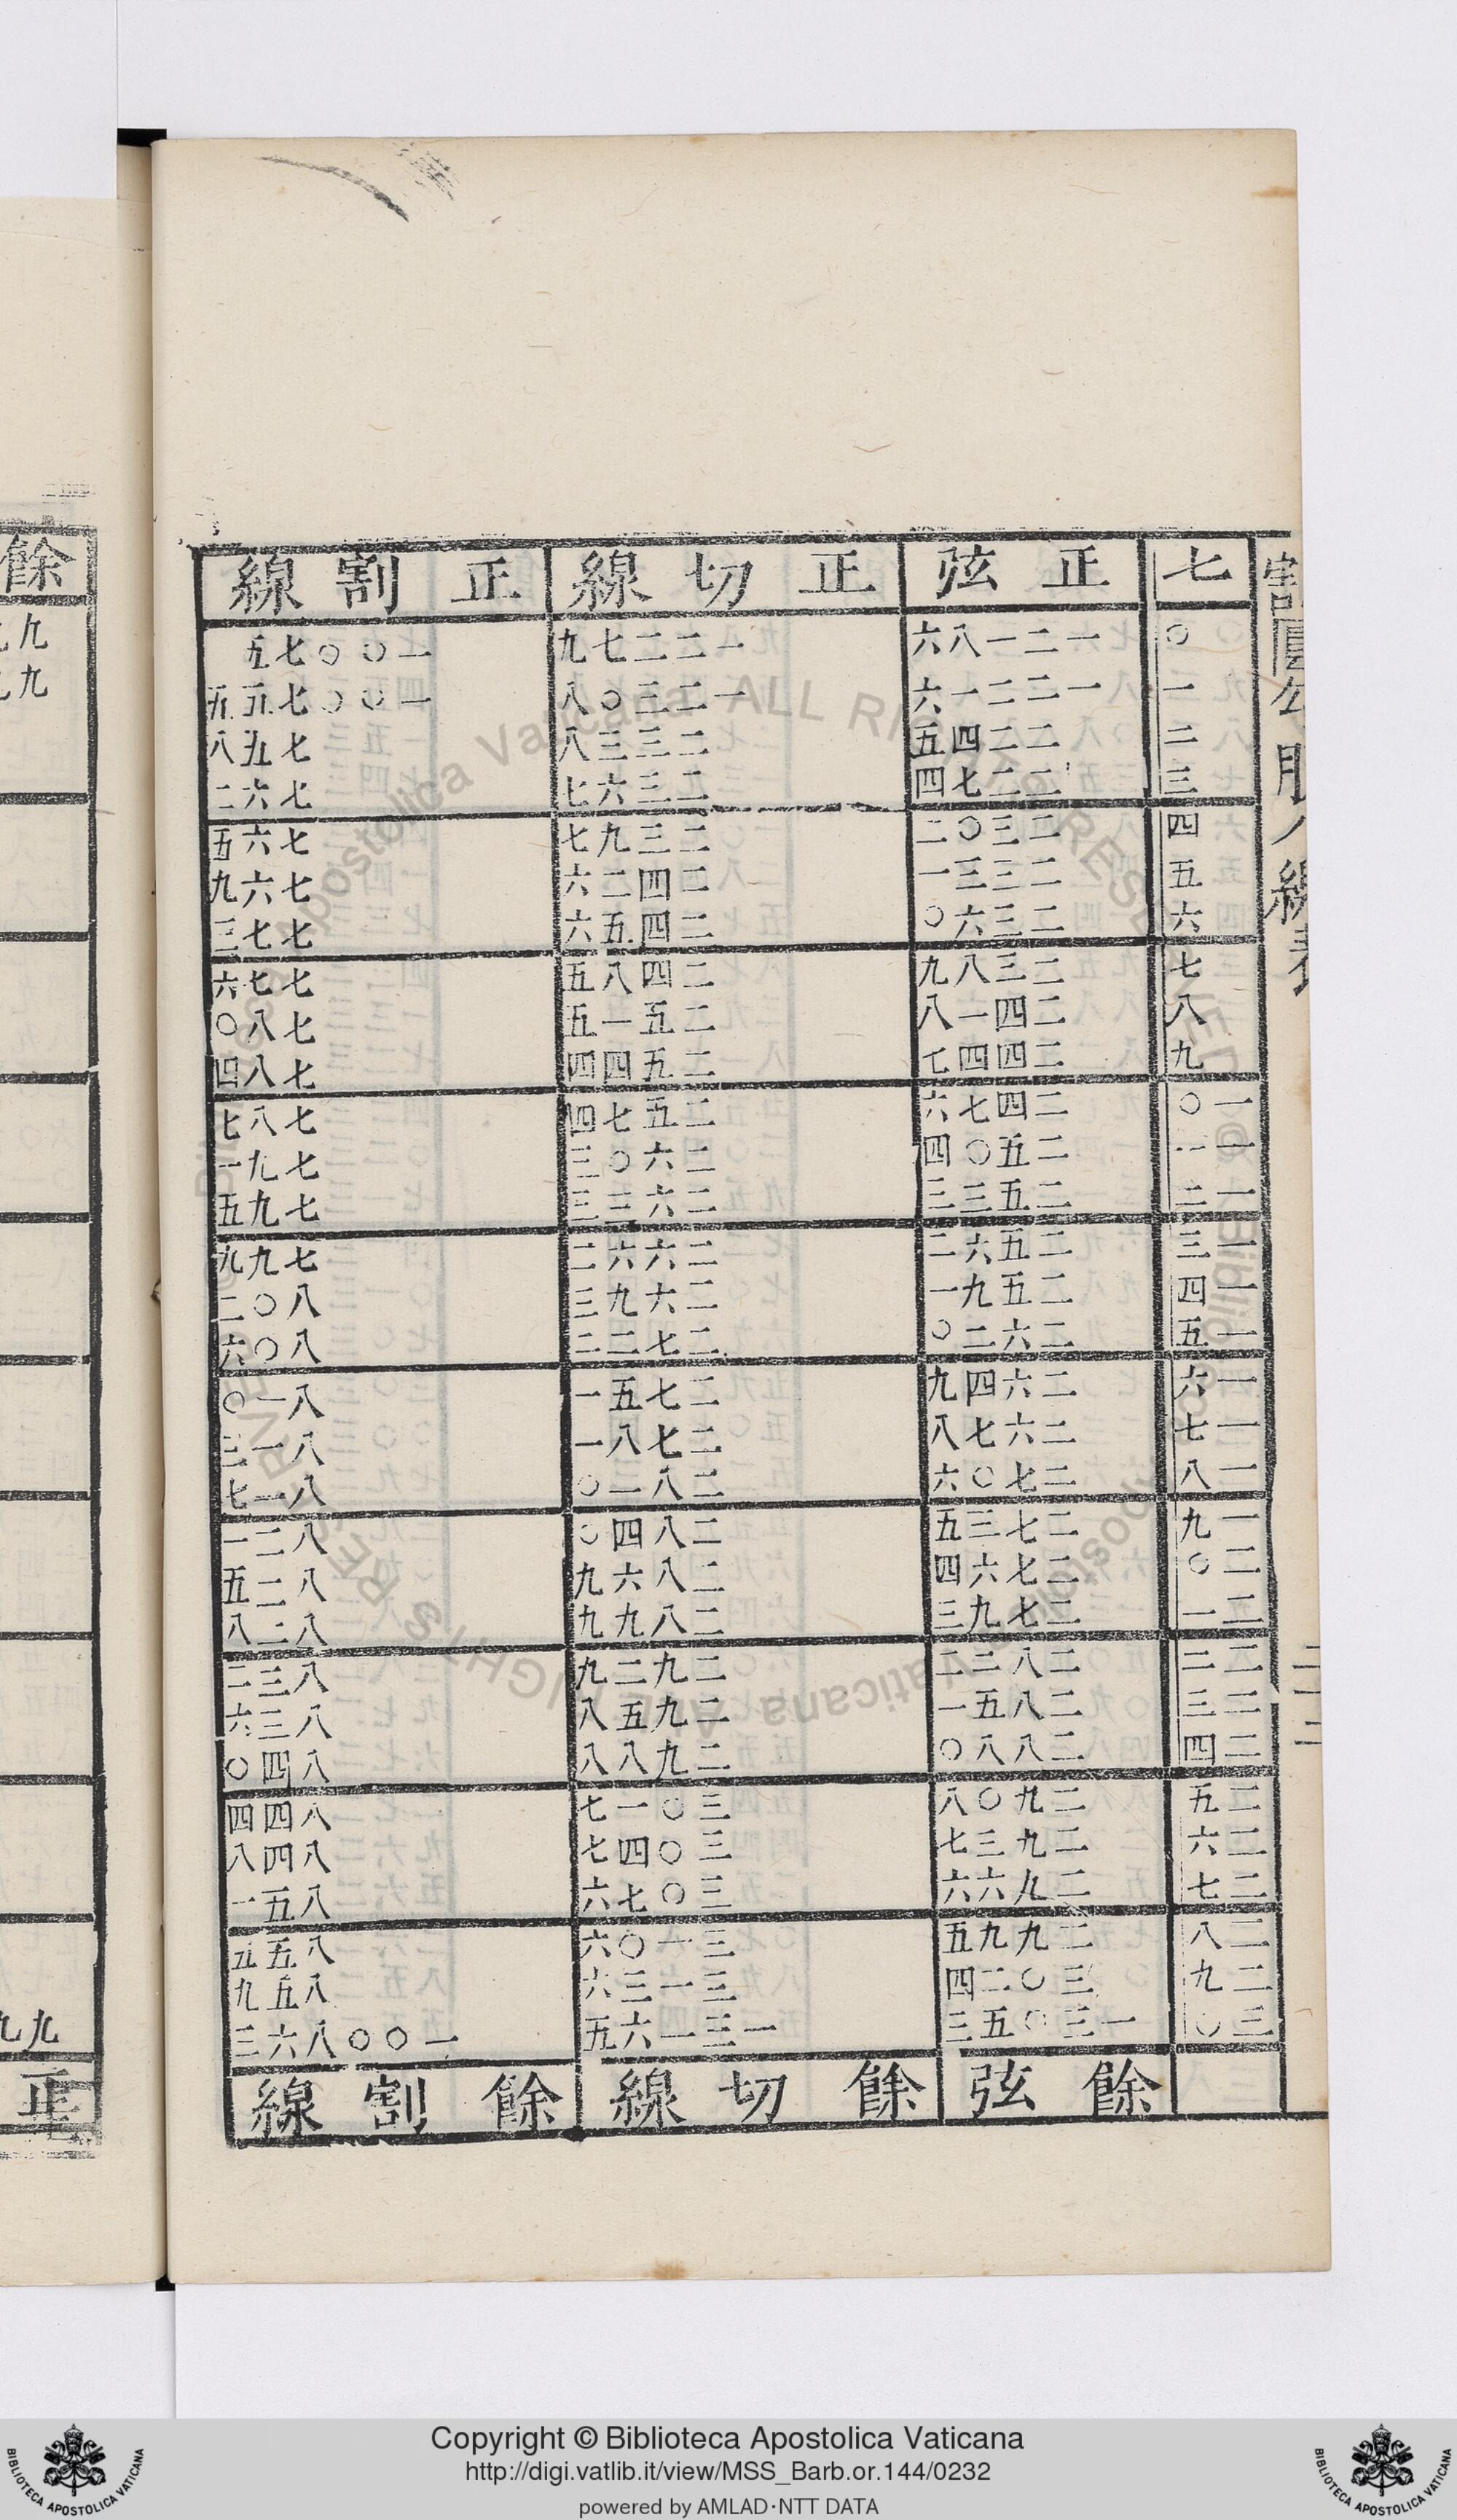 割圓勾股八線表
七 正弦 正切線 正割線
○ 一二一八六 一二二七九 一○○七五
一 一二二一六 一二三○八 一○○七五五
二 二二四五 二三三八 七五八
三 二二七四 二三六七 七六二
四 二三○二 二三九七 七六五
五 二三三一 二四二六 七六九
六 二三六○ 二四五六 七七三
七 二三八九 二四八五 七七六
八 二四一八 二五一五 七八○
九 二四四七 二五四四 七八四
一○ 二四七六 二五七四 七八七
一一 二五○四 二六○三 七九一
一二 二五三三 二六三三 七九五
一三 二五六二 二六六二 七九九
一四 二五九一 二六九三 八○二
一五 二六二○ 二七二二 八○六
一六 二六四九 二七五一 八一○
一七 二六七八 二七八一 八一三
一八 二七○六 二八一○ 八一七
一九 二七三五 二八四○ 八二一
二○ 二七六四 二八六九 八二五
二一 二七九三 二八九九 八二八
二二 二八二二 二九二九 八三二
二三 二八五一 二九五八 八三六
二四 二八八○ 二九八八 八四○
二五 二九○八 三○一七 八四四
二六 二九三七 三○四七 八四八
二七 二九六六 三○七六 八五一
二八 二九九五 三一○六 八五五
二九 三○二四 三一三六 八五九
三○ 一三○五三 一三一六五 一○○八六三
餘弦 餘切線 餘割線
餘
九
九
九九
正
Copyright © Biblioteca Apostolica Vaticana
http://digi.vatlib.it/view/MSS_Barb.or.144/0232
powered by AMLAD·NTT DATA
BIBLIOTECA APOSTOLICA VATICANA
BIBLIOTECA APOSTOLICA VATICANA